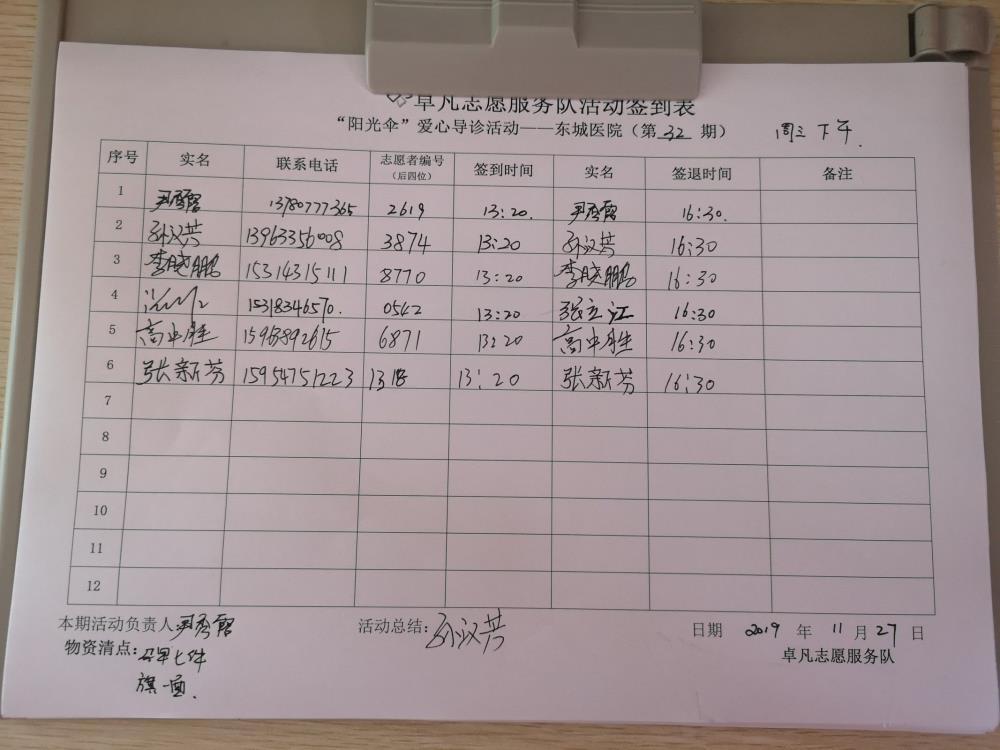 卓凡志愿服务队活动签到表
“阳光伞”爱心导诊活动——东城医院（第 32 期） 周三下午.
序号 实名 联系电话 志愿者编号（后四位） 签到时间 实名 签退时间 备注
1 尹秀霞 13780777365 2619 13:20. 尹秀霞 16:30.
2 孙汉芳 13963356008 3874 13:20 孙汉芳 16:30
3 李晓鹏 15314315111 8770 13:20 李晓鹏 16:30
4 15318346570. 13:20 张立江 16:30
5 高中胜 15963892615 6871 13:20 高中胜 16:30
6 张新芬 15954751223 1318 13:20 张新芬 16:30
7
8
9
10
11
12
本期活动负责人:尹秀霞 活动总结:孙汉芳 日期 2019 年 11 月 27 日
物资清点:马甲七件 卓凡志愿服务队
旗一面.